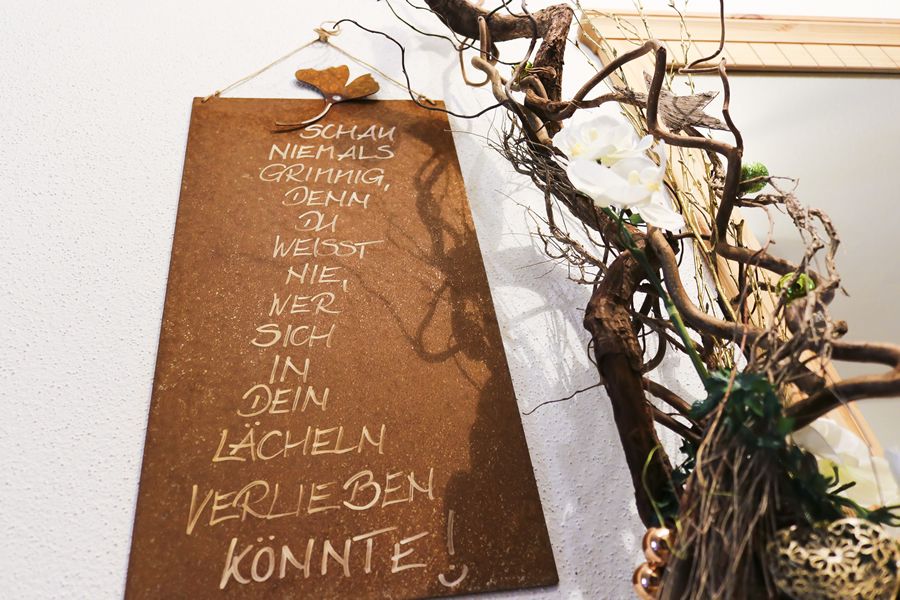 SCHAU
NIEMALS
GRIMMIG,
DENN
DU
WEISST
NIE,
WER
SICH
IN
DEIN
LÄCHELN
VERLIEBEN
KÖNNTE!